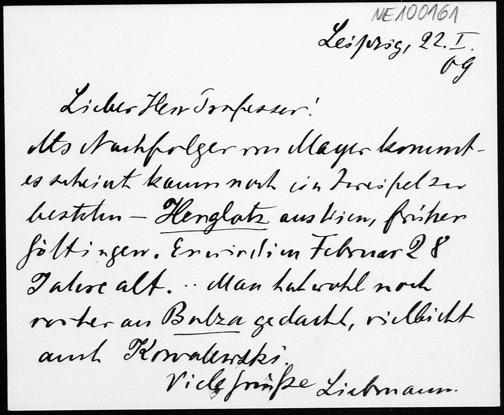 NE100161
Leipzig, 22. I.
09
Lieber Herr Professor!
Als Nachfolger von Mayer kommt –
es scheint kaum noch ein Zweifel zu
bestehn – Herglotz aus Wien, früher
Göttingen. Er wird im Februar 28
Jahre alt. .. Man hat wohl noch
vorher an Bolza gedacht, vielleicht
auch Kowalewski.
Viele Grüße Liebmann.